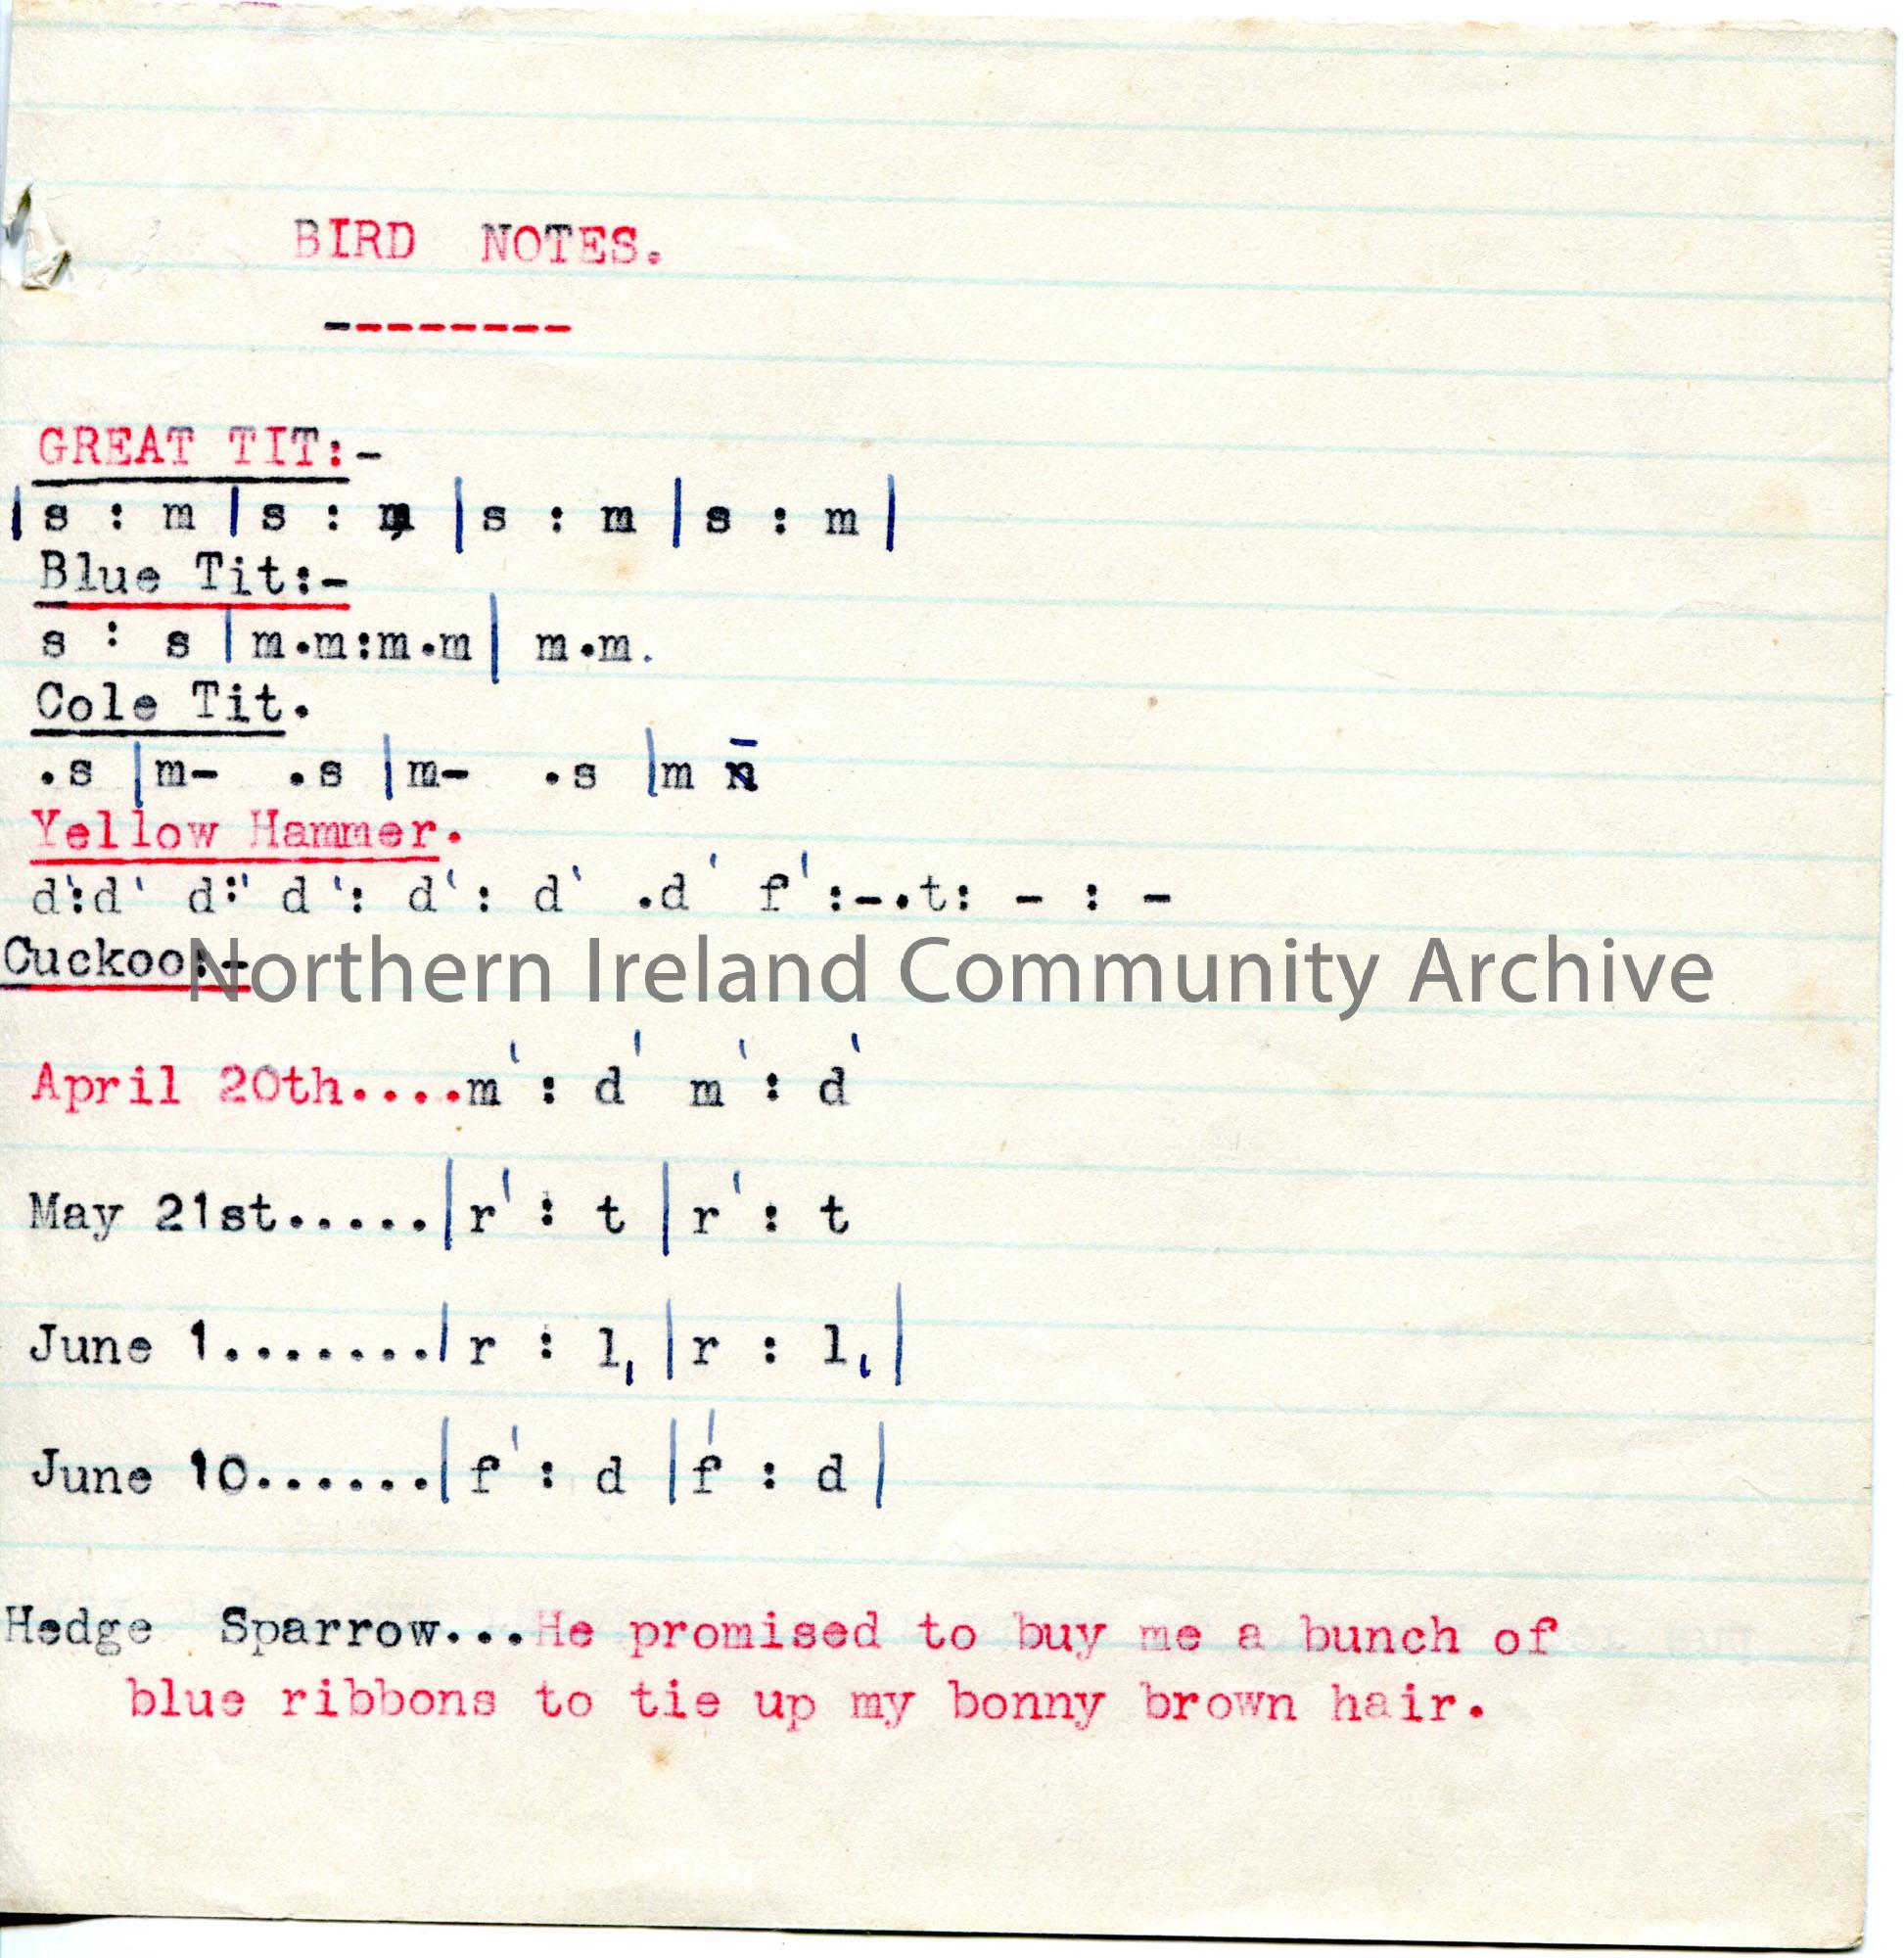 BIRD NOTES.
---------
GREAT TIT:-
| s : m | s : m | s : m | s : m |
Blue Tit:-
s : s | m.m:m.m | m.m.
Cole Tit.
.s | m- .s | m- .s | m
Yellow Hammer.
d':d' d:'' d ': d': d' .d' f':-.t: - : -
Cuckoo:-
Northern Ireland Community Archive
April 20th....m' : d' m' : d'
May 21st.....| r' : t | r' : t
June 1.......| r : l, | r : l, |
June 10......| f' : d | f' : d |
Hedge Sparrow...He promised to buy me a bunch of
blue ribbons to tie up my bonny brown hair.